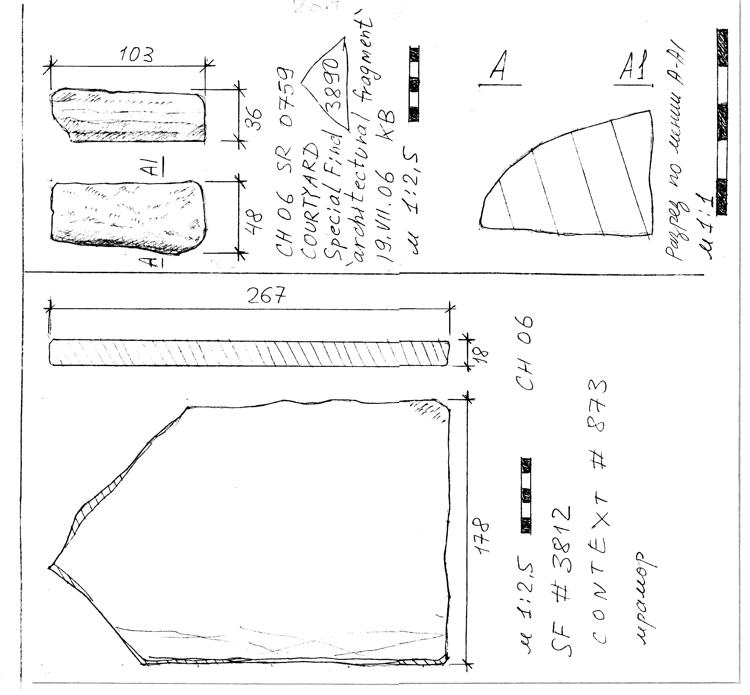 103
36
A1
48
A1
CH 06 SR 0759
COURTYARD
Special Find 3890
'architectural fragment'
19.VII.06 KB
м 1:2,5
A A1
Разрез по линии A-A1
м 1:1
267
18
178
CH 06
м 1:2,5
SF # 3812
CONTEXT # 873
мрамор